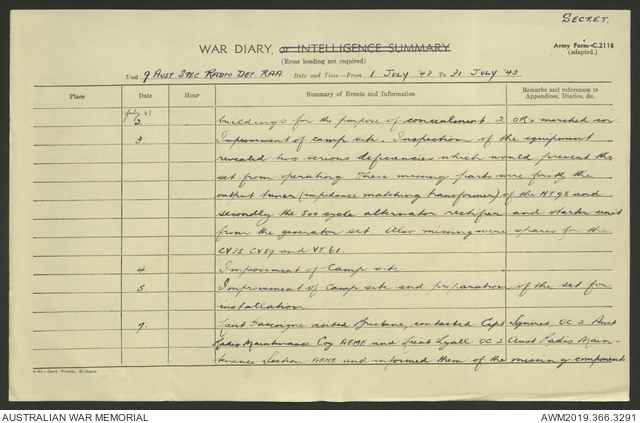 SECRET.
WAR DIARY, or INTELLIGENCE SUMMARY
Army Form C.2118
(adapted.)
(Erase heading not required)
Unit 9 AUST SPEC RADIO DET RAA Date and Time—From 1 JULY '43 To 31 JULY '43
Place Date Hour Summary of Events and Information Remarks and references to
Appendices, Diaries, &c.
July 43
buildings for the purpose of concealment. 2 OR's marched in.
3 Improvement of camp site. Inspection of the equipment
revealed two serious deficiencies which would prevent the
set from operating. These missing parts were firstly the
output tuner (impedance matching transformer) of the and
secondly the 500 cycle alternator rectifier and starter unit
from the generator set. Also missing were spares for the
CV35 CV59 and VT61.
4 Improvement of Camp site
5 Improvement of camp site and preparation of the set for
installation
7. Lieut Gascoigne visited Brisbane, contacted Capt Squires OC 2 Aust
Radio Maintenance Coy AEME and Lieut Lyall OC 2 Aust Radio Main-
tenance Section AEME and informed them of the missing component
4-43—Govt. Printer, Brisbane.
AUSTRALIAN WAR MEMORIAL
AWM2019.366.3291